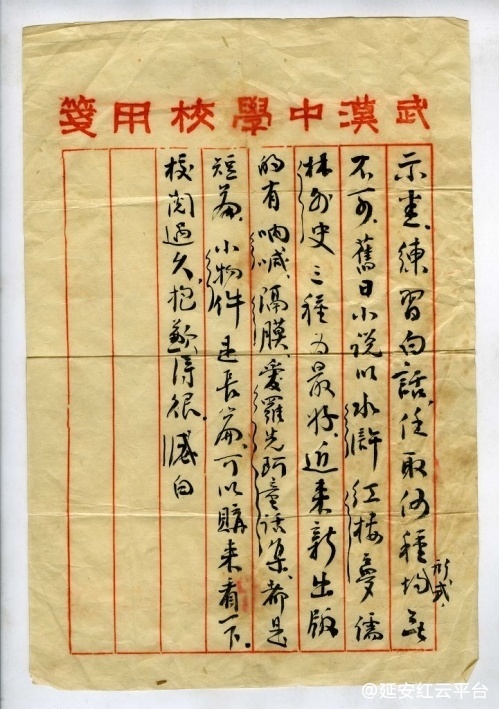 武漢中學校用箋
示悉、練習白話、任取何種形式均無
不可、舊日小說以水滸紅樓夢儒
林外史三種為最好、近来新出版
的有吶喊、隔膜、愛羅先珂童話集、都是
短篇、小物件是長篇、可以購来看一下。
校閱過久、抱歉得很。白
@延安红云平台